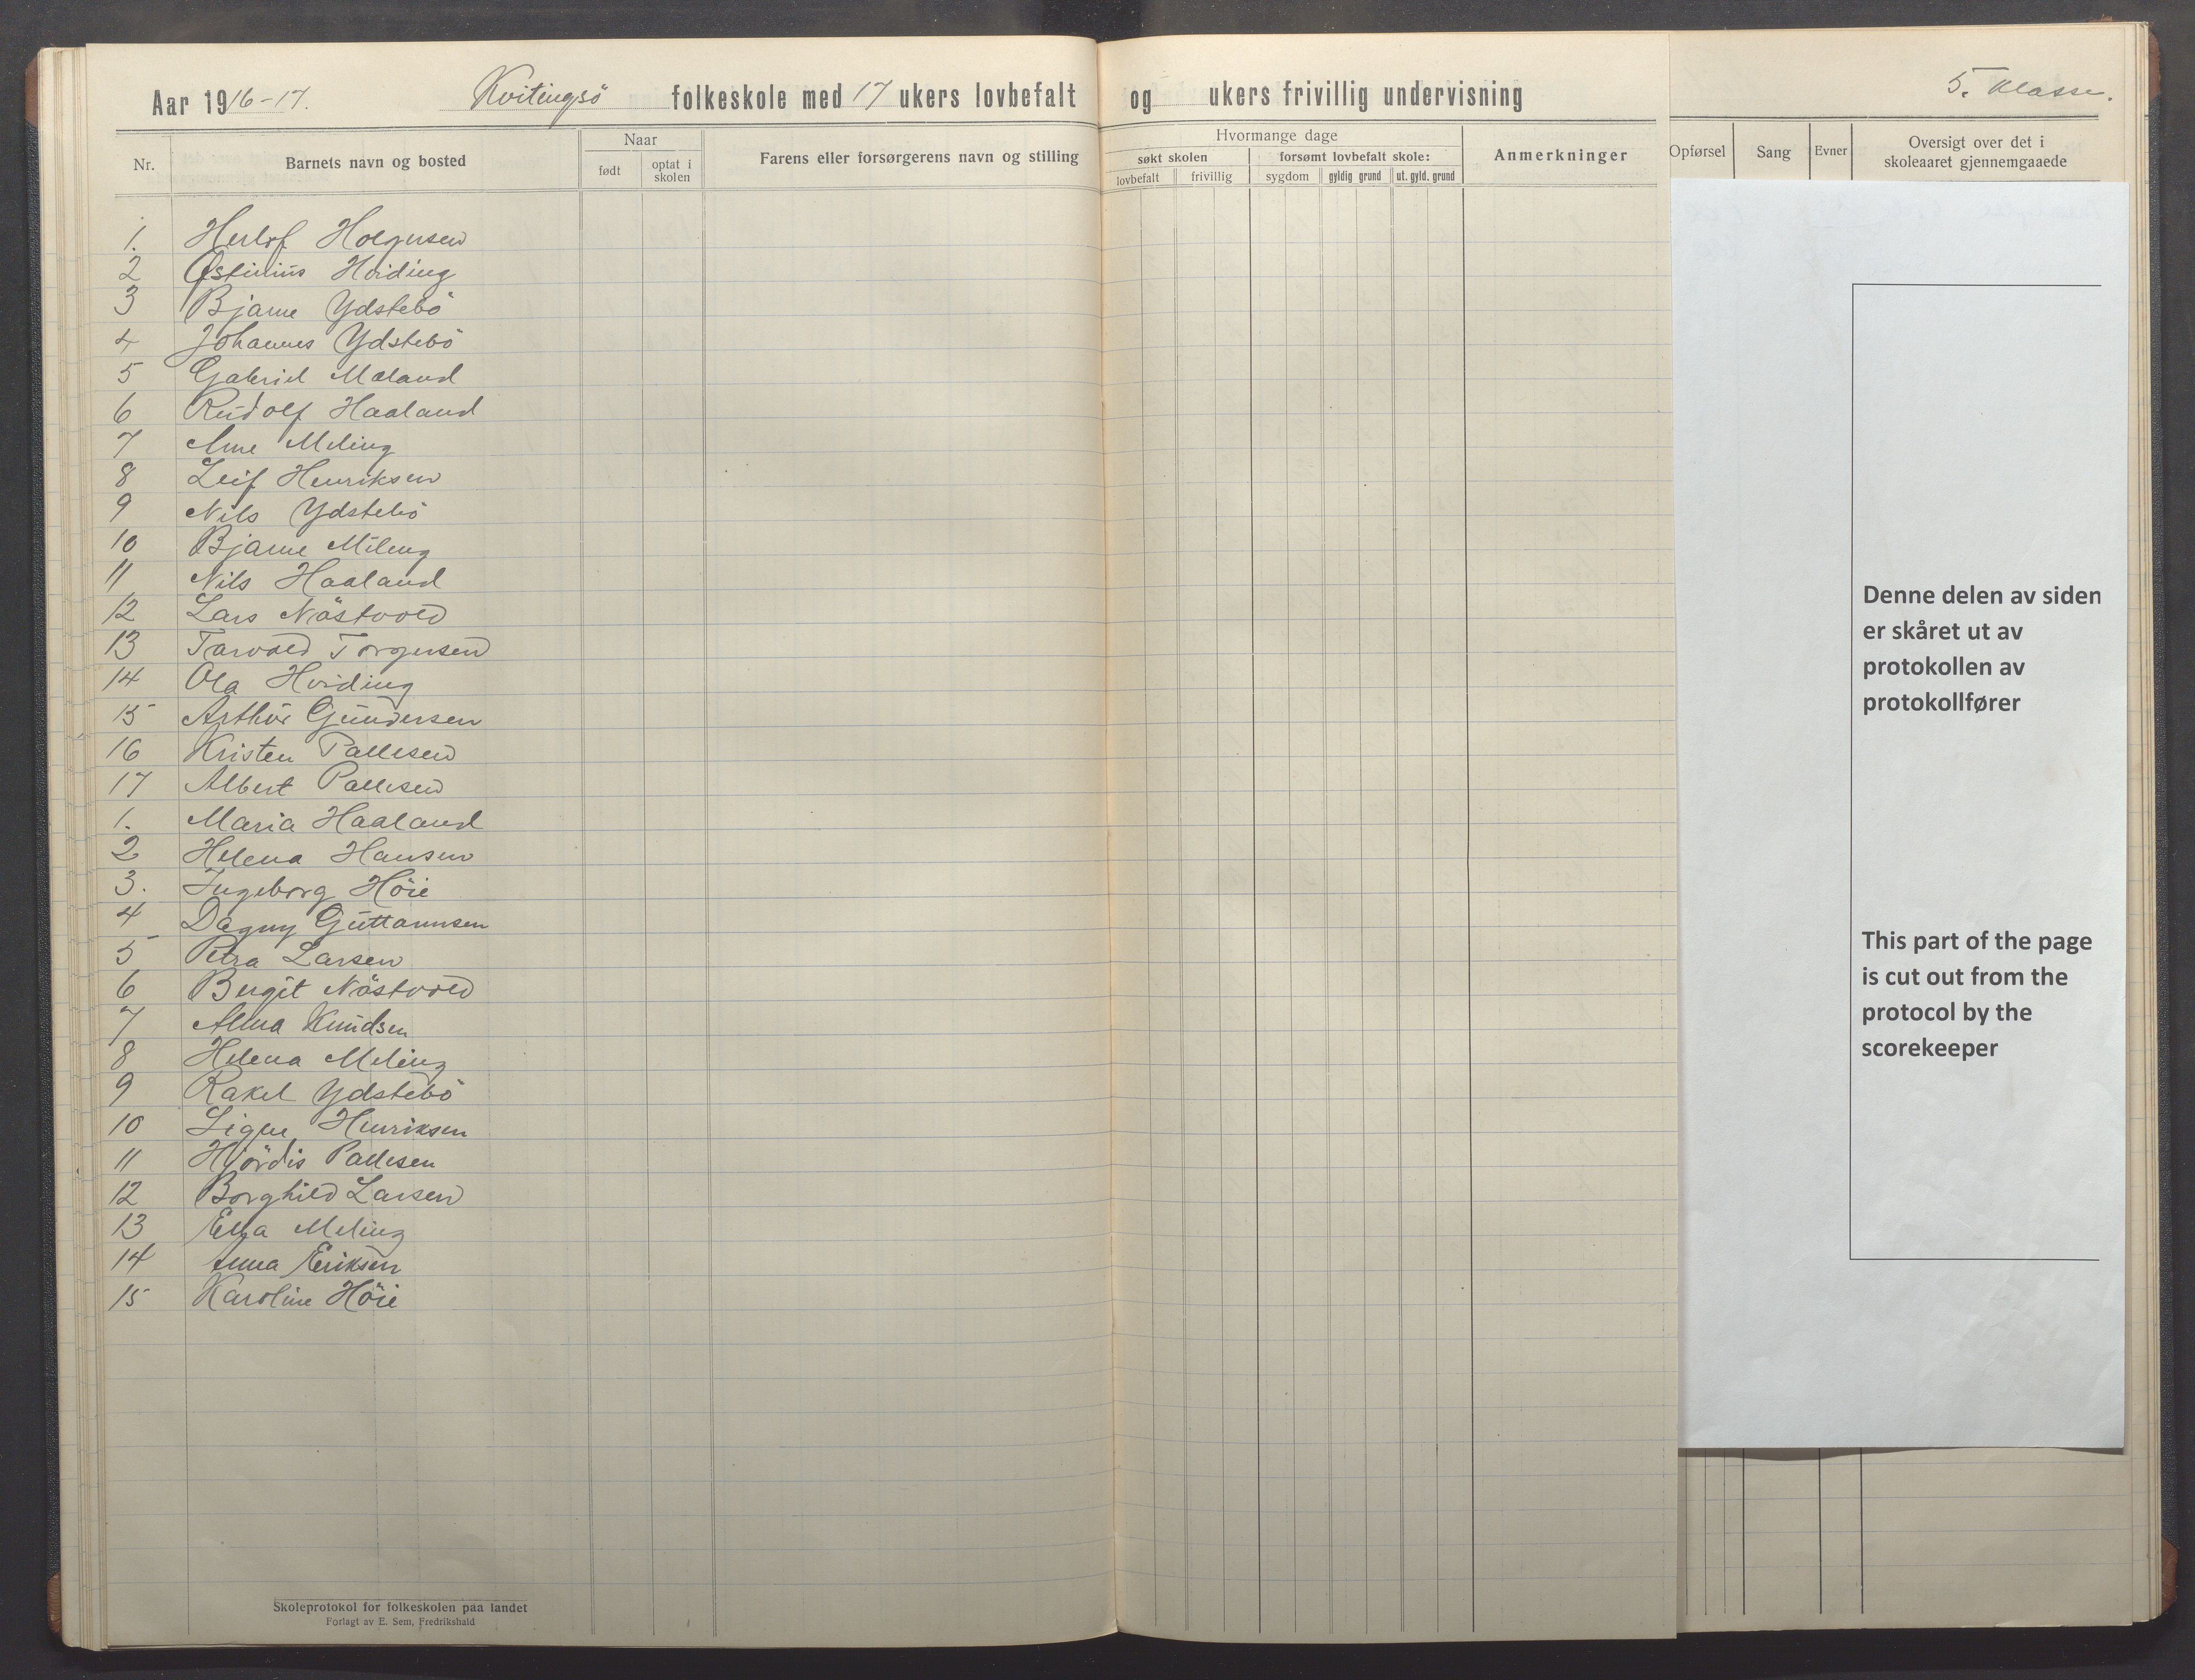 Aar 1916-17. Kvitingsö folkeskole med 17 ukers lovbefalt og ukers frivillig undervisning 5. klasse.
Nr. Barnets navn og bosted Naar født optat i skolen Farens eller forsørgerens navn og stilling Hvormange dage søkt skolen lovbefalt frivillig forsømt lovbefalt skole: sygdom gyldig grund ut. gyld. grund Anmerkninger Opførsel Sang Evner Oversigt over det i skoleaaret gjennemgaaede
1. Herlof Holgersen
2 Østinius Hviding
3 Bjarne Ydstebö
4 Johannes Ydstebö
5 Gabriel Mæland
6 Rudolf Haaland
7 Arne Meling
8 Leif Henriksen
9 Nils Ydstebö
10 Bjarne Meling
11 Nils Haaland
12 Lars Nöstvold
13 Tarvald Torgersen
14 Ola Hviding
15 Arthur Gundersen
16 Kristen Pallesen
17 Albert Pallesen
1. Maria Haaland
2 Helena Hansen
3. Ingeborg Höie
4 Dagny Guttormsen
5 Petra Larsen
6 Bergit Nöstvold
7 Alma Knudsen
8 Helena Meling
9 Rakel Ydstebö
10 Signe Henriksen
11 Hjördis Pallesen
12 Borghild Larsen
13 Elsa Meling
14 Anna Eriksen
15 Karoline Höie
Skoleprotokol for folkeskolen paa landet
Forlagt av E. Sem, Fredrikshald
Denne delen av siden
er skåret ut av
protokollen av
protokollfører
This part of the page
is cut out from the
protocol by the
scorekeeper